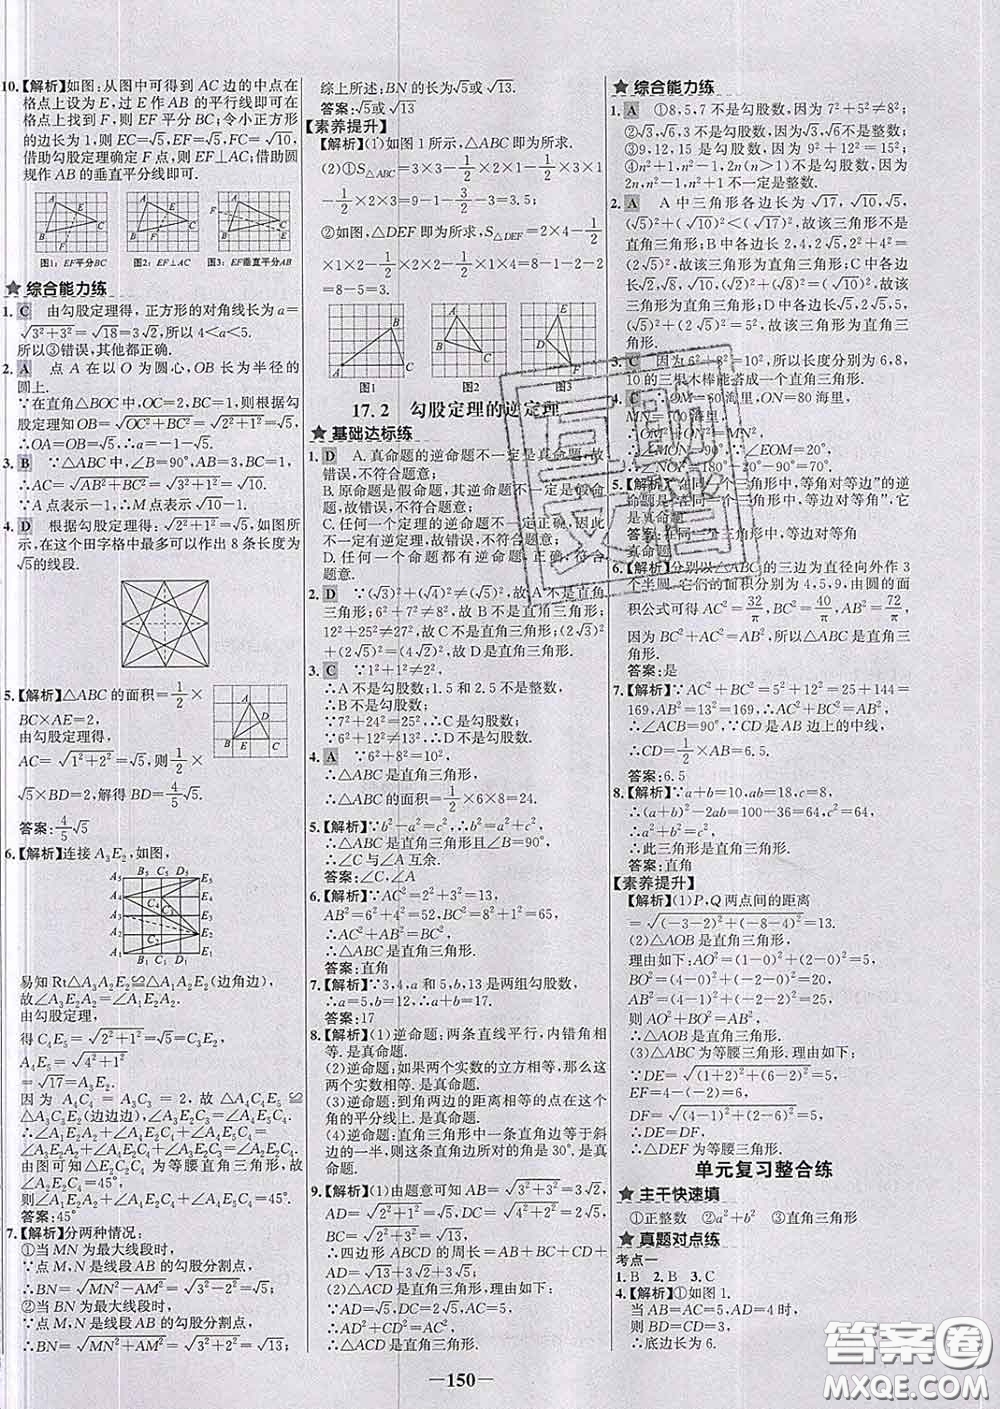 10.【解析】如图:从图中可得到 AC 边的中点在
格点上设为 E,过 E 作 AB 的平行线即可在
格点上找到 F,则 EF 平分 BC;令小正方形
的边长为 1,则 EC=√5,EF=√5,FC=√10,
借助勾股定理确定 F 点,则 EF⊥AC;借助圆
规作 AB 的垂直平分线即可.
图1:EF平分BC 图2:EF⊥AC 图3:EF垂直平分AB
★综合能力练
1. C 由勾股定理得,正方形的对角线长为 a=
√(3²+3²)=√18=3√2,所以 4<a<5.
所以③错误,其他都正确.
2. A 点 A 在以 O 为圆心,OB 长为半径的
圆上.
∵在直角△BOC 中,OC=2,BC=1,则根据勾
股定理知 OB=√(OC²+BC²)=√(2²+1²)=√5,
∴OA=OB=√5,∴a=-1-√5.
3. B ∵△ABC 中,∠B=90°,AB=3,BC=1,
∴AC=√(AB²+BC²)=√(3²+1²)=√10.
∵A 点表示-1,∴M 点表示√10-1.
4. D 根据勾股定理得:√(2²+1²)=√5,如图所
示,在这个田字格中最多可以作出 8 条长度为
√5的线段.
5.【解析】△ABC 的面积=1/2×
BC×AE=2,
由勾股定理得,
AC=√(1²+2²)=√5,则1/2×
√5×BD=2,解得 BD=4/5√5.
答案:4/5√5
6.【解析】连接 A₃E₂,如图,
易知 Rt△A₃A₂E₂≌△A₁A₂E₂(边角边),
故∠A₃E₂A₂=∠A₁E₂A₂.
由勾股定理,
得 C₄E₅=√(2²+1²)=√5=C₃E₂,
A₄E₅=√(4²+1²)
=√17=A₃E₂.
因为 A₄C₄=A₃C₃=2,故△A₄C₄E₅≌
△A₃C₃E₂(边边边),∠A₃E₂C₃=∠A₄E₅C₄.
∴∠A₁E₂A₂+∠A₄E₂C₄+∠A₄E₅C₄=
∠A₃E₂A₂+∠A₄E₂C₄+∠A₃E₂C₃=∠A₂E₂C₄.
由图可知△E₂C₂C₄ 为等腰直角三角形,故
∠A₂E₂C₄=45°,
则∠A₁E₂A₂+∠A₄E₂C₄+∠A₄E₅C₄=45°.
答案:45°
7.【解析】分两种情况:
①当 MN 为最大线段时,
∵点 M,N 是线段 AB 的勾股分割点,
∴BN=√(MN²-AM²)=√(3²-2²)=√5;
②当 BN 为最大线段时,
∵点 M,N 是线段 AB 的勾股分割点,
∴BN=√(MN²+AM²)=√(3²+2²)=√13,
综上所述:BN 的长为√5或√13.
答案:√5或√13
【素养提升】
【解析】(1)如图 1 所示,△ABC 即为所求.
(2)①S△ABC=3×3-1/2×3×1-1/2×2×1-
1/2×2×3=9-1-3/2-3=3.5;
②如图,△DEF 即为所求,S△DEF=2×4-1/2
×1×2-1/2×1×2-1/2×2×2=8-1-1-2
=8-5=3.
图1 图2 图3
17.2 勾股定理的逆定理
★基础达标练
1. D A.真命题的逆命题不一定是真命题,故
错误,不符合题意;
B.原命题是假命题,其逆命题不一定是假命
题,故错误,不符合题意;
C.任何一个命题都有逆命题,但任何一个定理不
一定有逆定理,故错误,不符合题意;
D.任何一个命题都有逆命题,正确,符合
题意.
2. D ∵(√3)²+(√4)²≠(√5)²,故 A 不是直角
三角形;6²+7²≠8²,故 B 不是直角三角形;
12²+25²≠27²,故 C 不是直角三角形;(2√3)²
+(2√2)²=(2√5)²,故 D 是直角三角形.
3. C ∵1²+1²≠2²,
∴A 不是勾股数;1.5 和 2.5 不是整数,
∴B 不是勾股数;
∵7²+24²=25²,∴C 是勾股数;
∵6²+12²≠13²,∴D 不是勾股数.
4. A ∵6²+8²=10²,
∴△ABC 是直角三角形,
∴△ABC 的面积=1/2×6×8=24.
5.【解析】∵b²-a²=c²,∴b²=a²+c²,
∴△ABC 是直角三角形且∠B=90°,
∴∠C 与∠A 互余.
答案:∠C,∠A
6.【解析】∵AC²=2²+3²=13,
AB²=6²+4²=52,BC²=8²+1²=65,
∴AC²+AB²=BC²,
∴△ABC 是直角三角形.
答案:直角
7.【解析】∵3,4,a 和 5,b,13 是两组勾股数,
∴a=5,b=12,∴a+b=17.
答案:17
8.【解析】(1)逆命题:两条直线平行,内错角相
等.是真命题.
(2)逆命题:如果两个实数的立方相等,那么这
两个实数相等.是真命题.
(3)逆命题:到角两边的距离相等的点在这个
角的平分线上.是真命题.
(4)逆命题:直角三角形中一条直角边等于斜
边的一半,则这条直角边所对的角是 30°.是真
命题.
9.【解析】(1)由题意可知 AB=√(3²+3²)=3√2,
AD=√(2²+1²)=√5,DC=√(4²+2²)=2√5,
BC=√(3²+2²)=√13,
∴四边形 ABCD 的周长=AB+BC+CD+
AD=3√2+√13+2√5+√5=3√2+√13+3√5;
(2)△ACD 是直角三角形,理由如下:
∵AD=√5,DC=2√5,AC=5,
∴AD²+CD²=AC²,
∴△ACD 是直角三角形.
★综合能力练
1. A ①8,5,7 不是勾股数,因为 7²+5²≠8²;
②√3,√6,√3不是勾股数,因为√3,√6,√3不是整数;
③9,12,15 是勾股数,因为 9²+12²=15²;
④n²+1,n²-1,2n(n>1)不是勾股数,因为
2n,n²-1,n²+1 不一定是整数.
2. A A 中三角形各边长为√17,√10,√5,而
(√5)²+(√10)²<(√17)²,故该三角形不是
直角三角形;
答案:在同一个三角形中,等边对等角
真命题
6.【解析】分别以△ABC 的三边为直径向外作 3
个半圆,它们的面积分别为 4,5,9,由圆的面
积公式可得 AC²=32/π,BC²=40/π,AB²=72/π,
因为 BC²+AC²=AB²,所以△ABC 是直角三
角形.
答案:是
7.【解析】∵AC²+BC²=5²+12²=25+144=
169,AB²=13²=169,∴AC²+BC²=AB²,
∴∠ACB=90°,∵CD 是 AB 边上的中线,
∴CD=1/2×AB=6.5.
答案:6.5
8.【解析】∵a+b=10,ab=18,c=8,
∴(a+b)²-2ab=100-36=64,c²=64,
∴a²+b²=c²,
∴此三角形是直角三角形.
答案:直角
【素养提升】
【解析】(1)P,Q 两点间的距离
=√((-3-2)²+(-8-4)²)=13.
(2)△AOB 是直角三角形,
理由如下:AO²=(1-0)²+(2-0)²=5,
BO²=(4-0)²+(-2-0)²=20,
AB²=(4-1)²+(-2-2)²=25,
则 AO²+BO²=AB²,
∴△AOB 是直角三角形.
(3)△ABC 为等腰三角形.理由如下:
∵DE=√((1+2)²+(6-2)²)=5,
EF=4-(-2)=6,
DF=√((4-1)²+(2-6)²)=5,
∴DE=DF,
∴△DEF 是等腰三角形.
单元复习整合练
★主干快速填
①正整数 ②a²+b² ③直角三角形
★真题对点练
考点一
1. B 2. B 3. C
4.【解析】①如图 1.
当 AB=AC=5,AD=4 时,
则 BD=CD=3,
∴底边长为 6.
—150—
答案圈
MXQE.COM